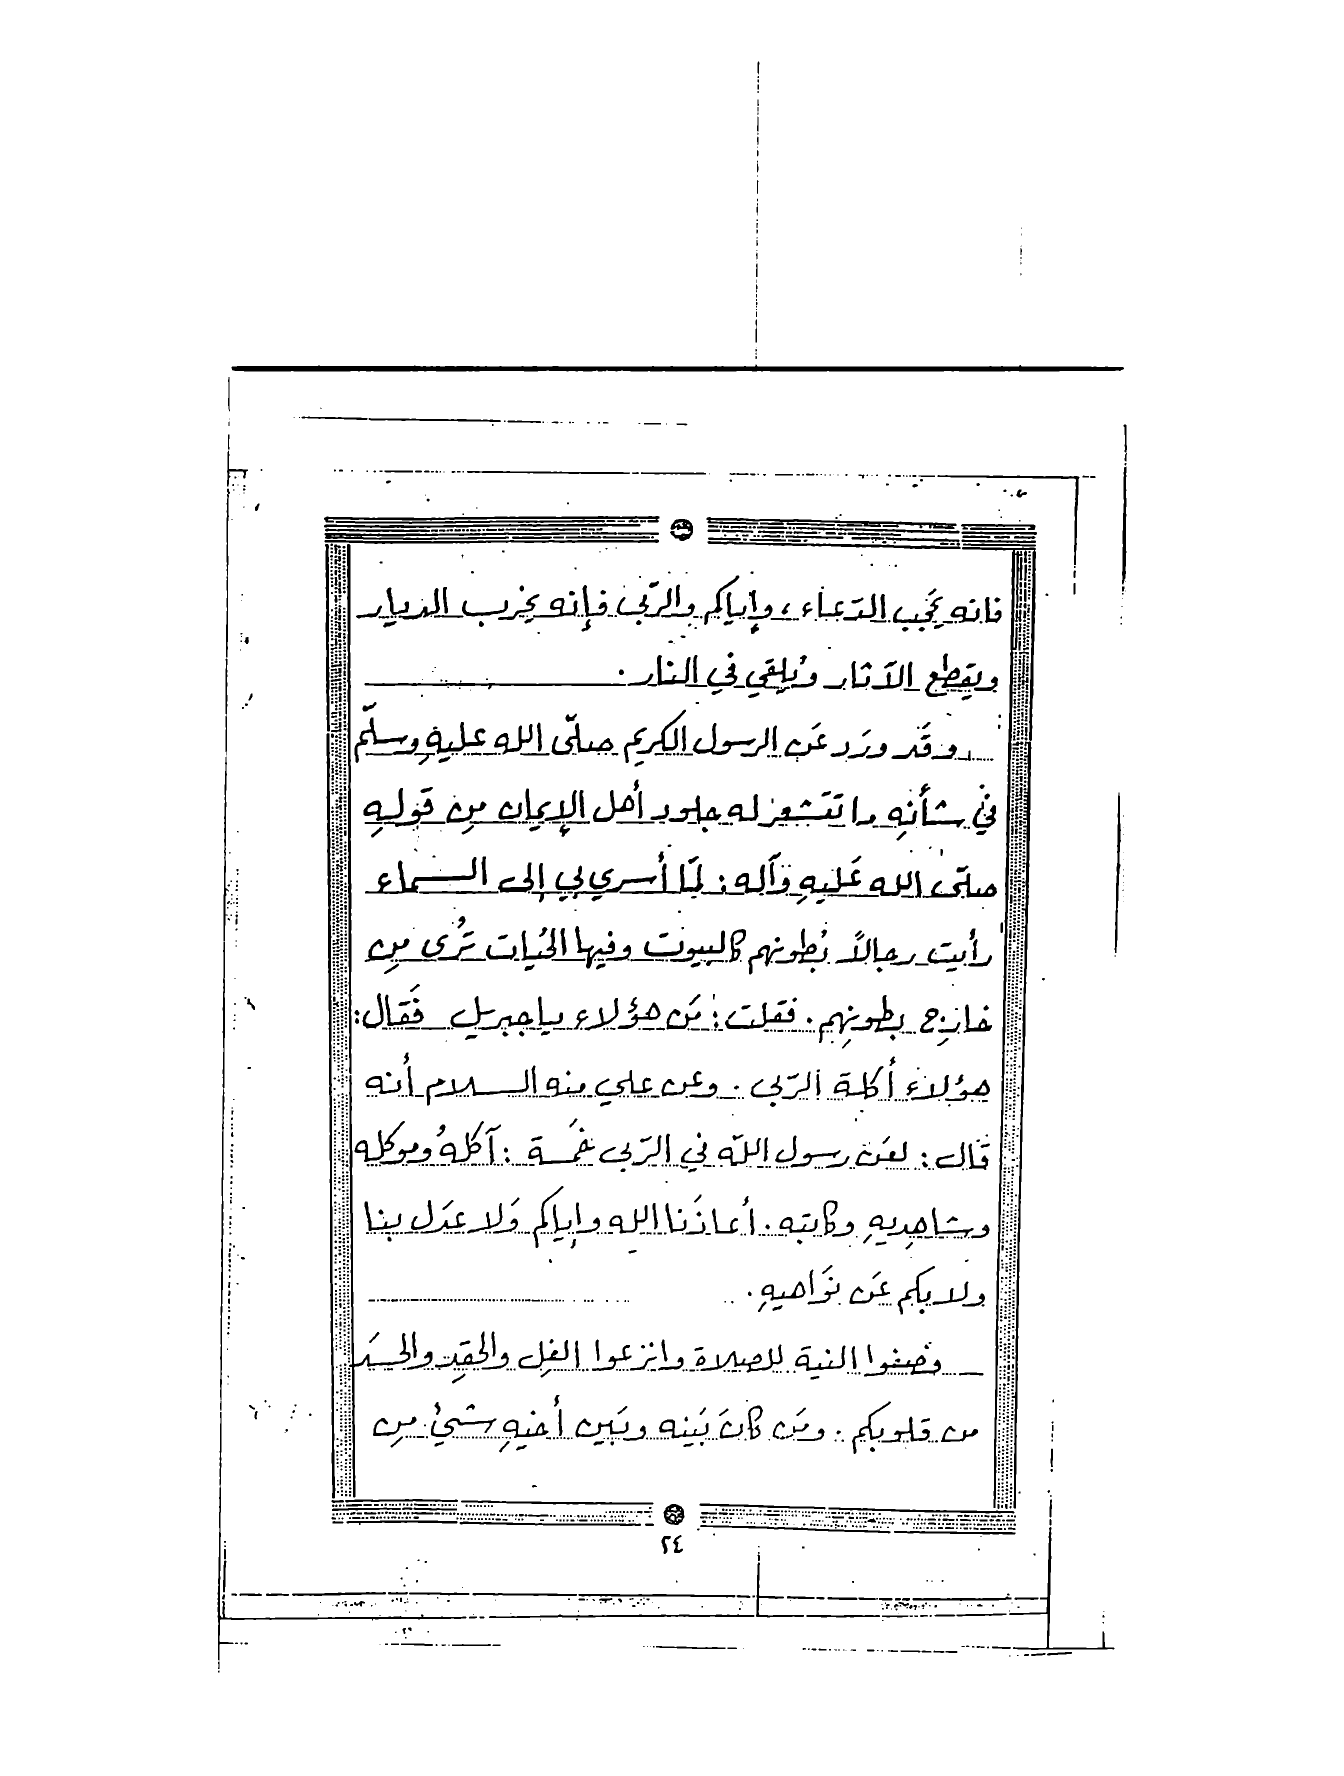 فانه يَحْجب الدّعاء ، وإياكم والرّبى فإنه يخرب الديار
ويقطع الآثار ويُلقي في النار .
وقَد ورَد عَن الرسول الكريم صلّى الله عليهِ وسلّم
في شأنهِ ما تَقشعر له جلود أهل الإيمان مِن قولهِ
صلّى الله عَليهِ وَآله : لمّا أسري بي إلى السماء
رأيت رجالاً بُطونهم كالبيوت وفيها الحَيات تُرى مِن
خارِج بطونِهم . فقلت : مَن هؤلاء ياجبريل فَقال :
هؤلاء أكلة الرّبى . وعن علي منه السلام أنه
قال : لعَن رسول اللّه في الرّبى خمَسة : آكلهُ وموكله
وشاهِديهِ وكاتبه . أعاذَنا الله وإياكم وَلا عدَل بنا
ولا بكم عَن نوَاهيهِ .
وَصفوا النية للصلاة وانزعوا الغِل والحقِد والحسَد
من قلوبكم . ومَن كانَ بَينه وبَين أخيهِ شيئ مِن
٢٤